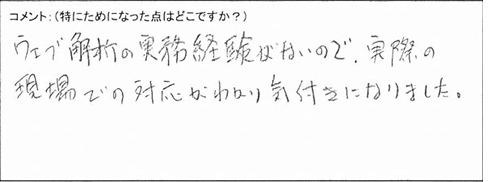 コメント:(特にためになった点はどこですか?)
ウェブ解析の実務経験がないので、実際の
現場での対応がわかり気付きになりました。